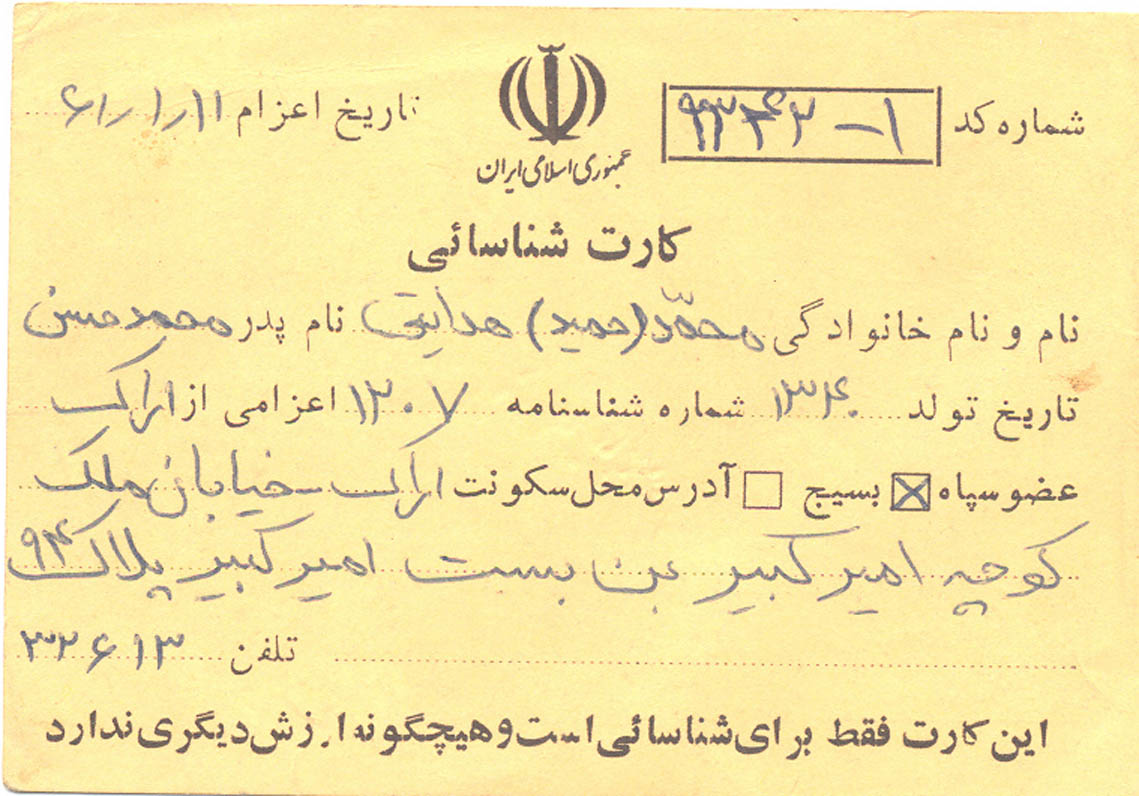 شماره کد ۱-۹۳۴۶۳
جمهوری اسلامی ایران
تاریخ اعزام ۶۱/۱/۱۱
کارت شناسائی
نام و نام خانوادگی محمّد (حمید) هدایتی نام پدر محمدحسن
تاریخ تولد ۱۳۴۰ شماره شناسنامه ۱۲۰۷ اعزامی از اراک
عضو سپاه ☒ بسیج ☐ آدرس محل سکونت اراک - خیابان ملک
کوچه امیر کبیر بن بست امیر کبیر پلاک ۹۴
تلفن ۳۲۶۱۳
این کارت فقط برای شناسائی است و هیچگونه ارزش دیگری ندارد